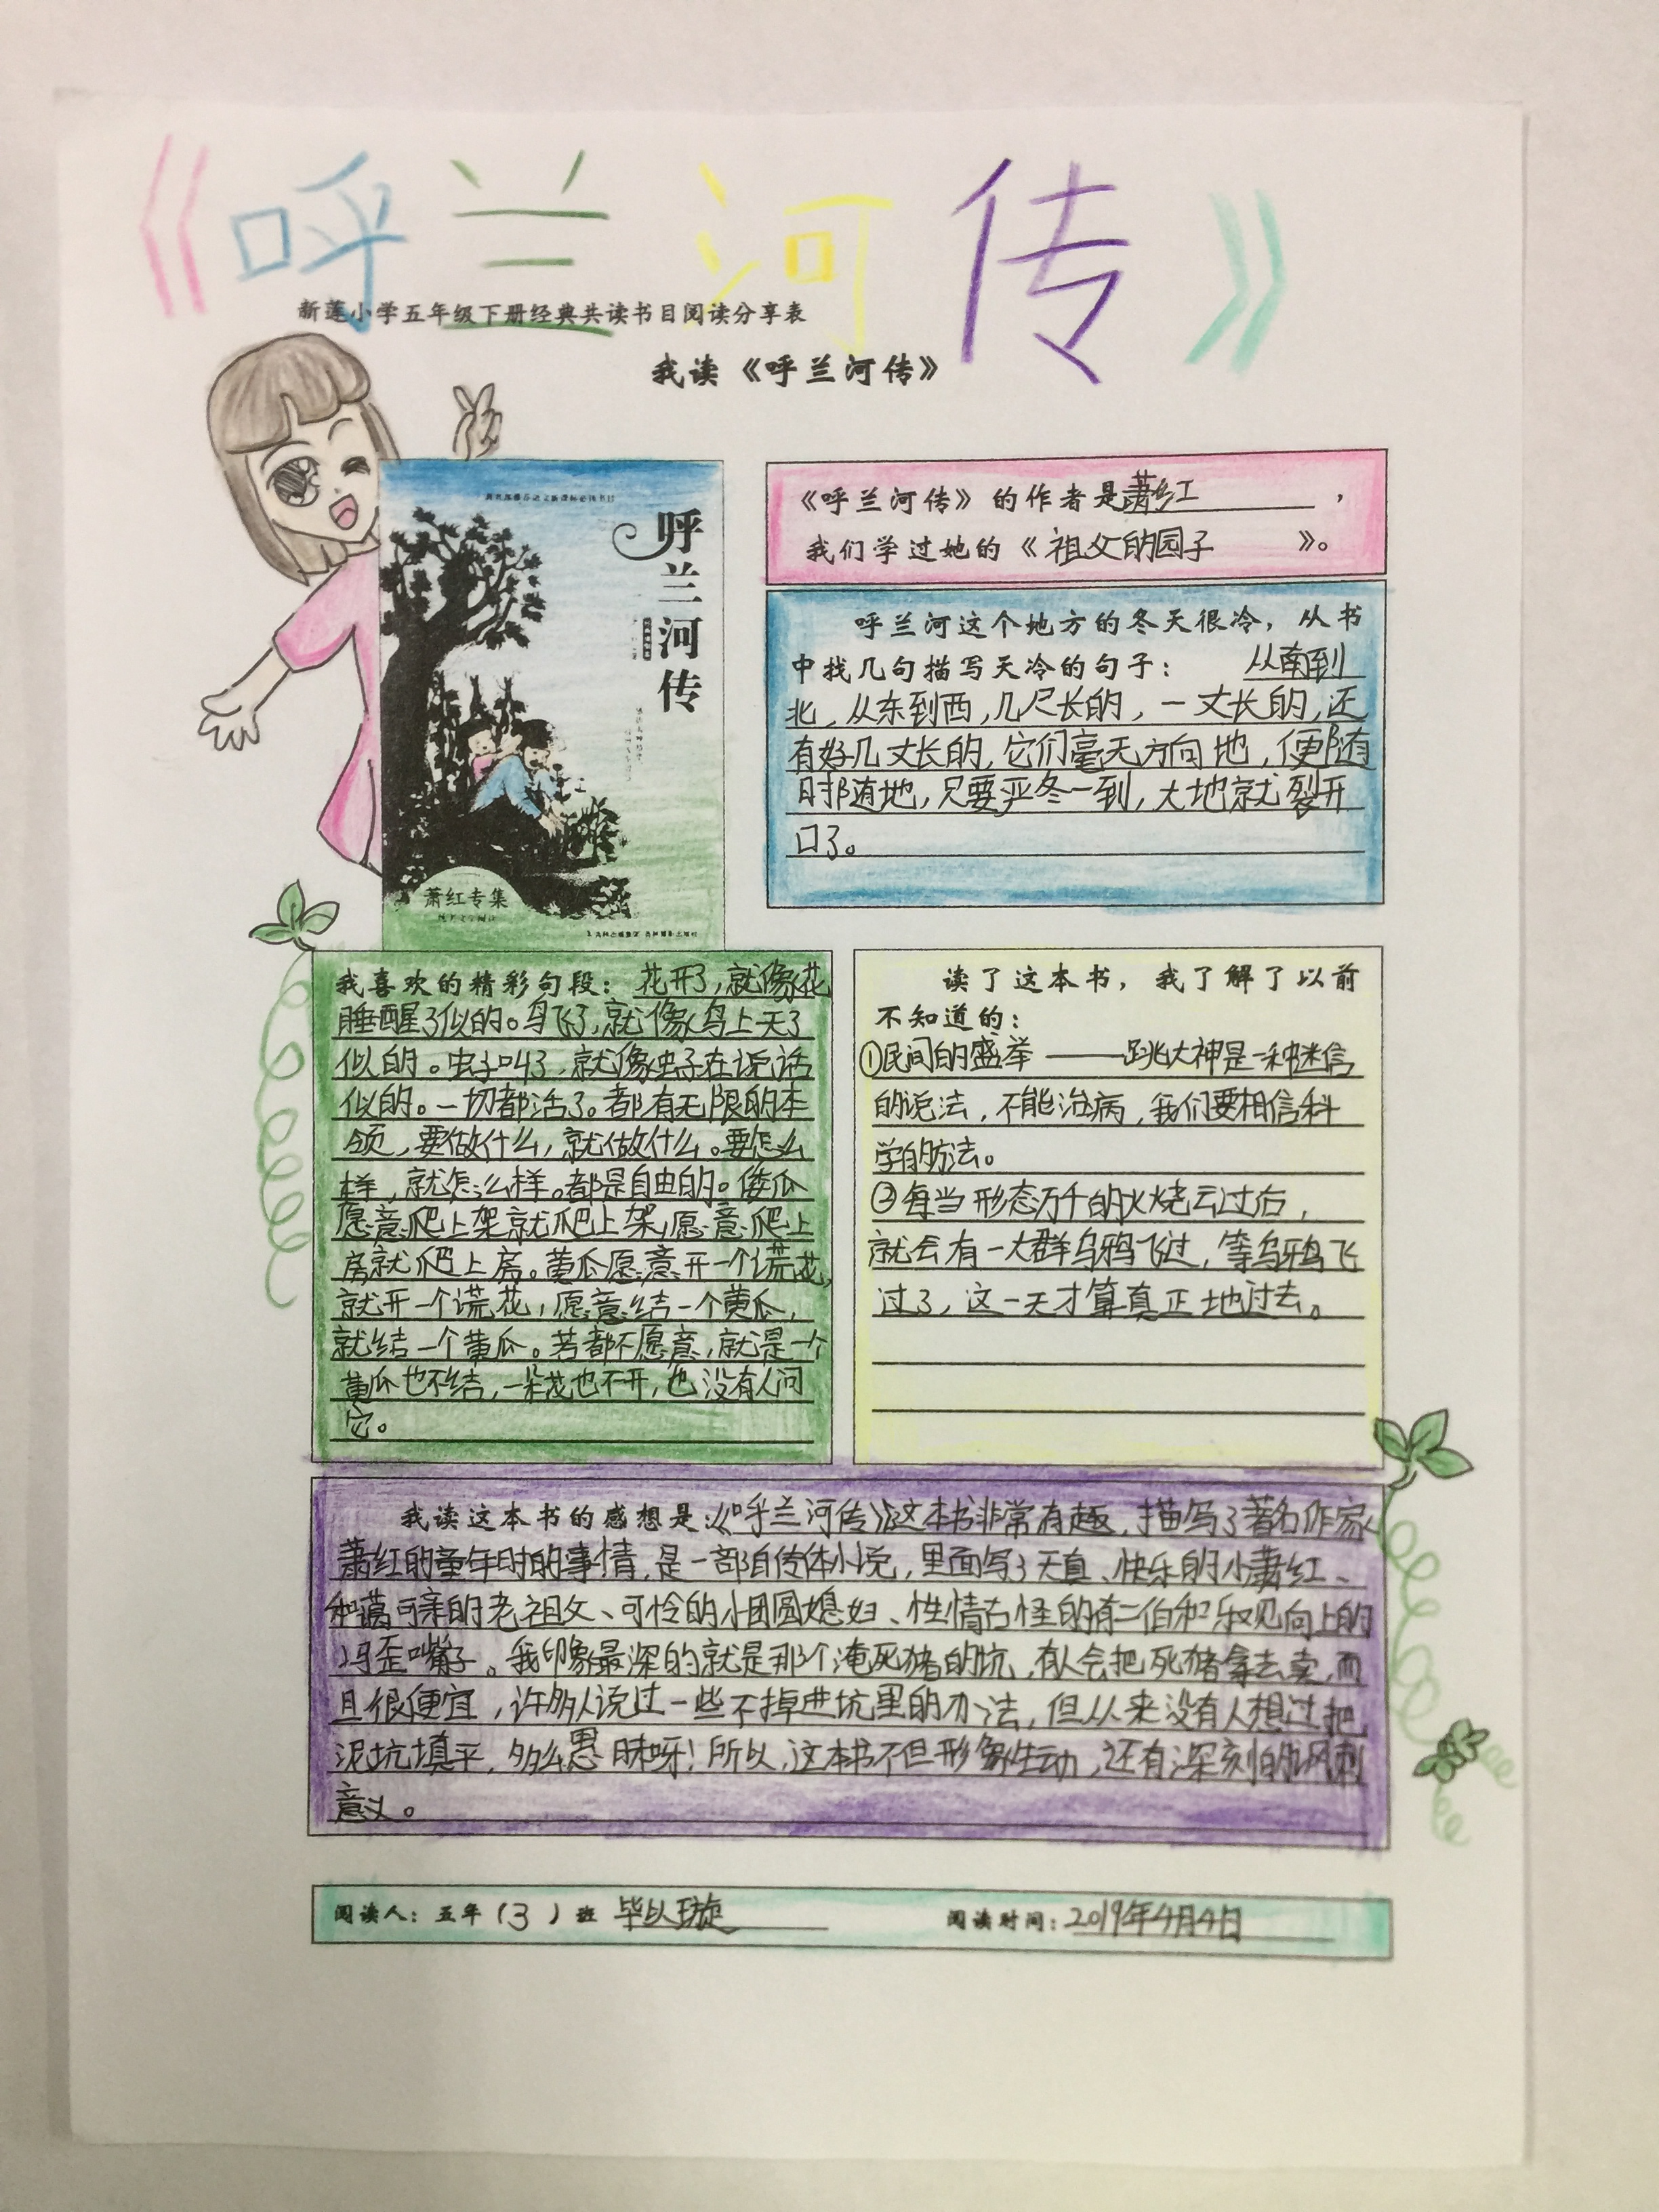 《呼兰河传》
新莲小学五年级下册经典共读书目阅读分享表
我读《呼兰河传》
呼兰河传
萧红专集
《呼兰河传》的作者是萧红，
我们学过她的《祖父的园子》。
呼兰河这个地方的冬天很冷，从书
中找几句描写天冷的句子： 从南到
北，从东到西，几尺长的，一丈长的，还
有好几丈长的，它们毫无方向地，便随
时随地，只要严冬一到，大地就裂开
口了。
我喜欢的精彩句段：花开了，就像花
睡醒了似的。鸟飞了，就像鸟上天了
似的。虫子叫了，就像虫子在说话
似的。一切都活了。都有无限的本
领，要做什么，就做什么。要怎么
样，就怎么样。都是自由的。倭瓜
愿意爬上架就爬上架，愿意爬上
房就爬上房。黄瓜愿意开一个谎花，
就开一个谎花，愿意结一个黄瓜，
就结一个黄瓜。若都不愿意，就是一个
黄瓜也不结，一朵花也不开，也没有人问
它。
读了这本书，我了解了以前
不知道的：
①民间的盛举——跳大神是一种迷信
的说法，不能治病，我们要相信科
学的方法。
②每当形态万千的火烧云过后，
就会有一大群乌鸦飞过，等乌鸦飞
过了，这一天才算真正地过去。
我读这本书的感想是：《呼兰河传》这本书非常有趣，描写了著名作家
萧红的童年时的事情，是一部自传体小说，里面写了天真、快乐的小萧红、
和蔼可亲的老祖父、可怜的小团圆媳妇、性情古怪的有二伯和乐观向上的
冯歪嘴子。我印象最深的就是那个淹死猪的坑，有人会把死猪拿去卖，而
且很便宜，许多人说过一些不掉进坑里的办法，但从来没有人想过把
泥坑填平，多么愚昧呀！所以，这本书不但形象生动，还有深刻的讽刺
意义。
阅读人：五年（3）班 毕以璇 阅读时间：2019年4月4日